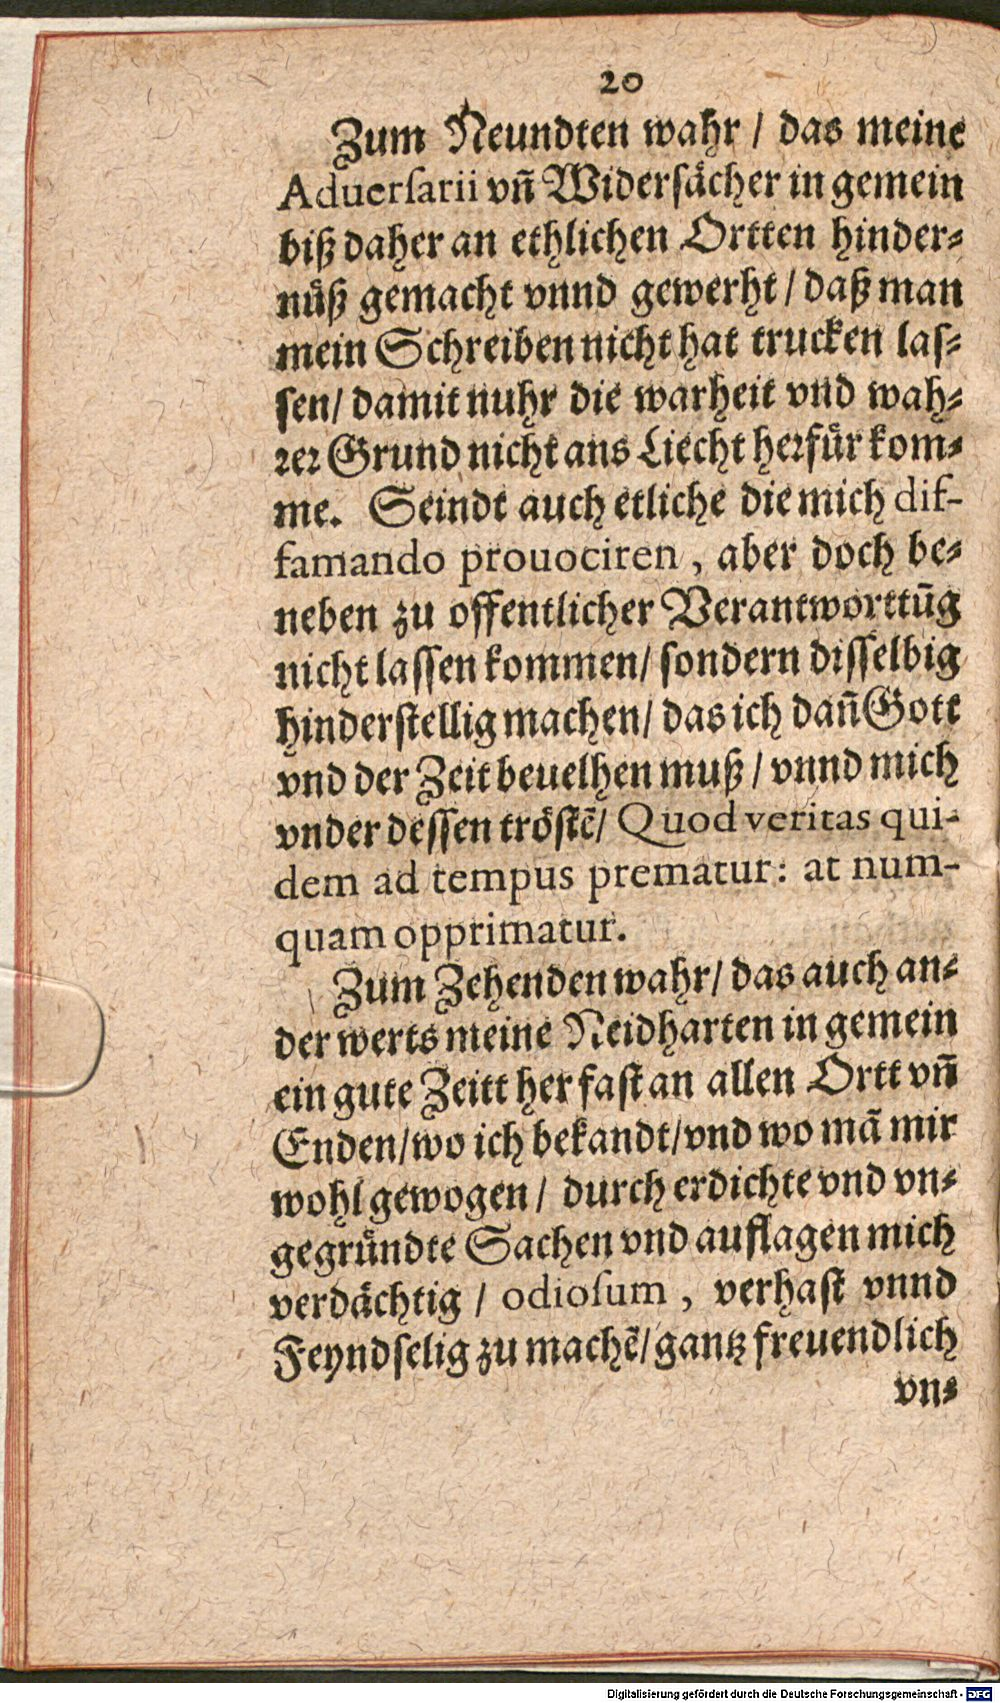 20
Zum Neundten wahr / das meine
Aduerſarii vn̄ Widerſaͤcher in gemein
biß daher an ethlichen Ortten hinder⸗
nuͤß gemacht vnnd gewerht / daß man
mein Schreiben nicht hat trucken laſ⸗
ſen / damit nuhr die warheit vnd wah⸗
rer Grund nicht ans Liecht herfuͤr kom⸗
me. Seindt auch etliche die mich dif-
famando prouociren , aber doch be⸗
neben zu offentlicher Verantworttūg
nicht laſſen kommen / ſondern diſſelbig
hinderſtellig machen / das ich dan̄ Gott
vnd der Zeit beuelhen muß / vnnd mich
vnder deſſen troͤſtē / Quod veritas qui-
dem ad tempus prematur: at num-
quam opprimatur.
Zum Zehenden wahr / das auch an⸗
der werts meine Neidharten in gemein
ein gute Zeitt her faſt an allen Ortt vn̄
Enden / wo ich bekandt / vnd wo mā mir
wohl gewogen / durch erdichte vnd vn⸗
gegruͤndte Sachen vnd auflagen mich
verdaͤchtig / odioſum , verhaſt vnnd
Feyndſelig zu machē / gantz freuendlich
vn⸗
Digitalisierung gefördert durch die Deutsche Forschungsgemeinschaft - DFG